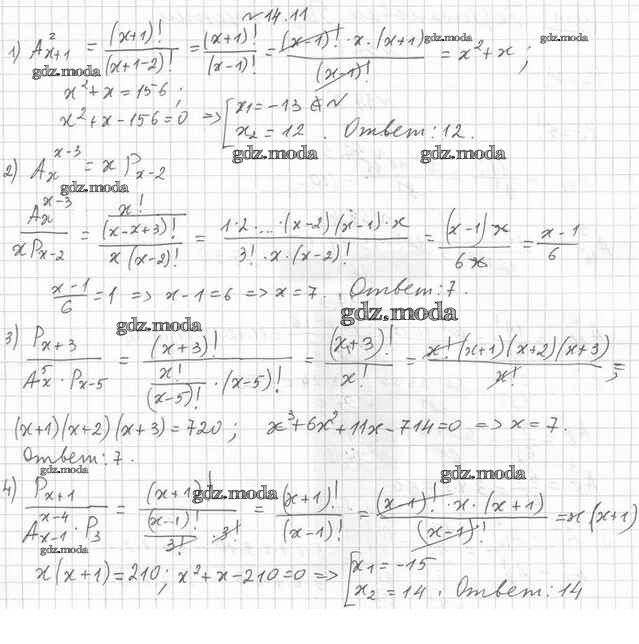 №14.11
1) A²ₓ₊₁ = (x+1)! / (x+1-2)! = (x+1)! / (x-1)! = (x-1)!·x·(x+1) / (x-1)! = x²+x ;
gdz.moda gdz.moda gdz.moda
x²+x=156 ;
x²+x-156=0 => [x₁=-13 ∉ N
x₂=12 . Ответ: 12.
gdz.moda gdz.moda
2) Aₓˣ⁻³ = x Pₓ₋₂
gdz.moda
Aₓˣ⁻³ / xPₓ₋₂ = (x! / (x-x+3)!) / (x(x-2)!) = 1·2·...·(x-2)(x-1)·x / 3!·x·(x-2)! = (x-1)x / 6x = x-1 / 6
x-1 / 6 = 1 => x-1=6 => x=7. Ответ: 7.
gdz.moda gdz.moda
3) Pₓ₊₃ / Aₓ⁵·Pₓ₋₅ = (x+3)! / (x! / (x-5)! ·(x-5)!) = (x+3)! / x! = x!(x+1)(x+2)(x+3) / x! ;
(x+1)(x+2)(x+3)=720 ; x³+6x²+11x-714=0 => x=7.
Ответ: 7.
gdz.moda gdz.moda
4) Pₓ₊₁ / Aₓ₋₁ˣ⁻⁴·P₃ = (x+1)! / ((x-1)! / 3! ·3!) = (x+1)! / (x-1)! = (x-1)!·x·(x+1) / (x-1)! = x(x+1)
gdz.moda gdz.moda
x(x+1)=210; x²+x-210=0 => [x₁=-15
x₂=14 . Ответ: 14